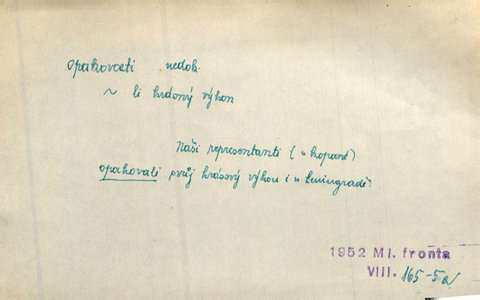 opakovati nedok.
~ li krásný výkon
Naši representanti (v kopané)
opakovali svůj krásný výkon i v Leningradě.
1952 Ml. fronta
VIII. 165-5a